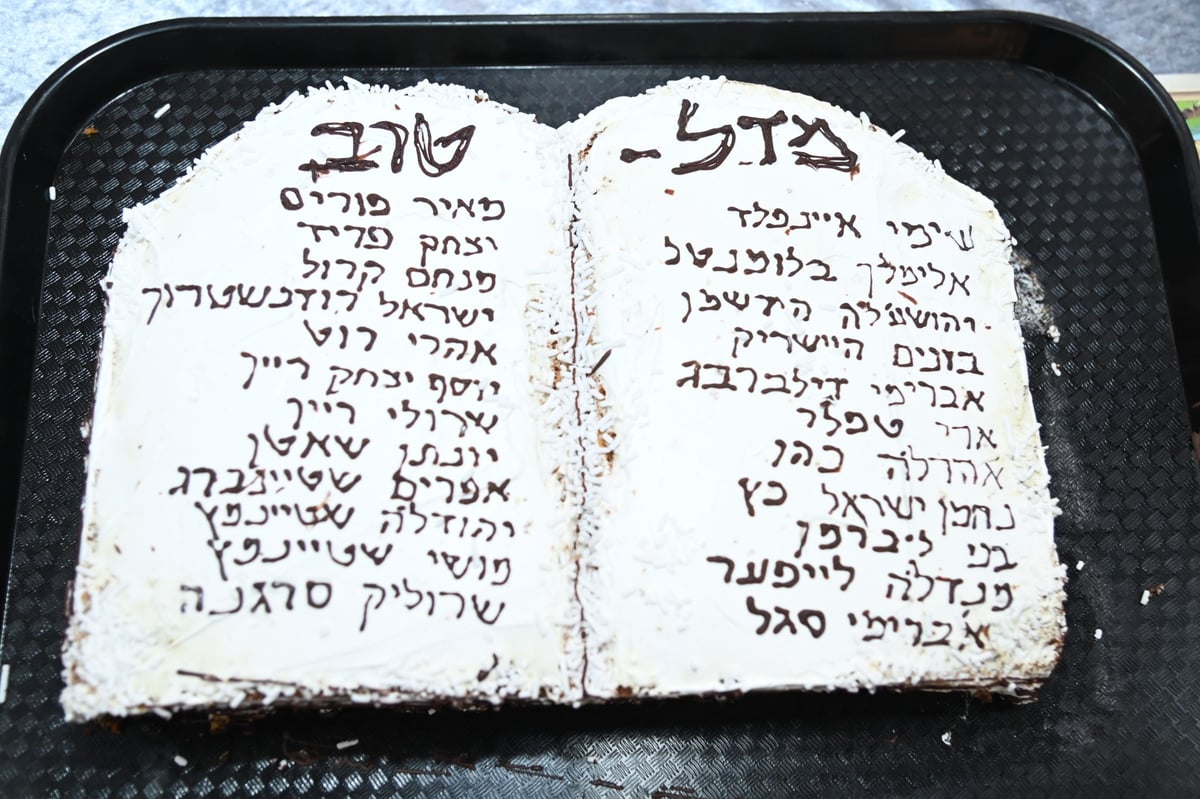 מדל - טוב
שימי איינפלד
אלימלך בלומנטל
יהושע'לה הירשמן
בונים היישריק
אברימי זילברברג
ארי טפלר
אהרלה כהן
נחמן ישראל כץ
בני ליברמן
מנדלה לייפער
אברימי סגל
מאיר פורים
יצחק פריד
מנחם קרול
ישראל רודנשטרוך
אהרי רוט
יוסף יצחק רייך
שרולי רייך
יונתן שאטן
אפרים שטיינברג
יהודלה שטיינמץ
מושי שטיינמץ
שרוליק סרגנה